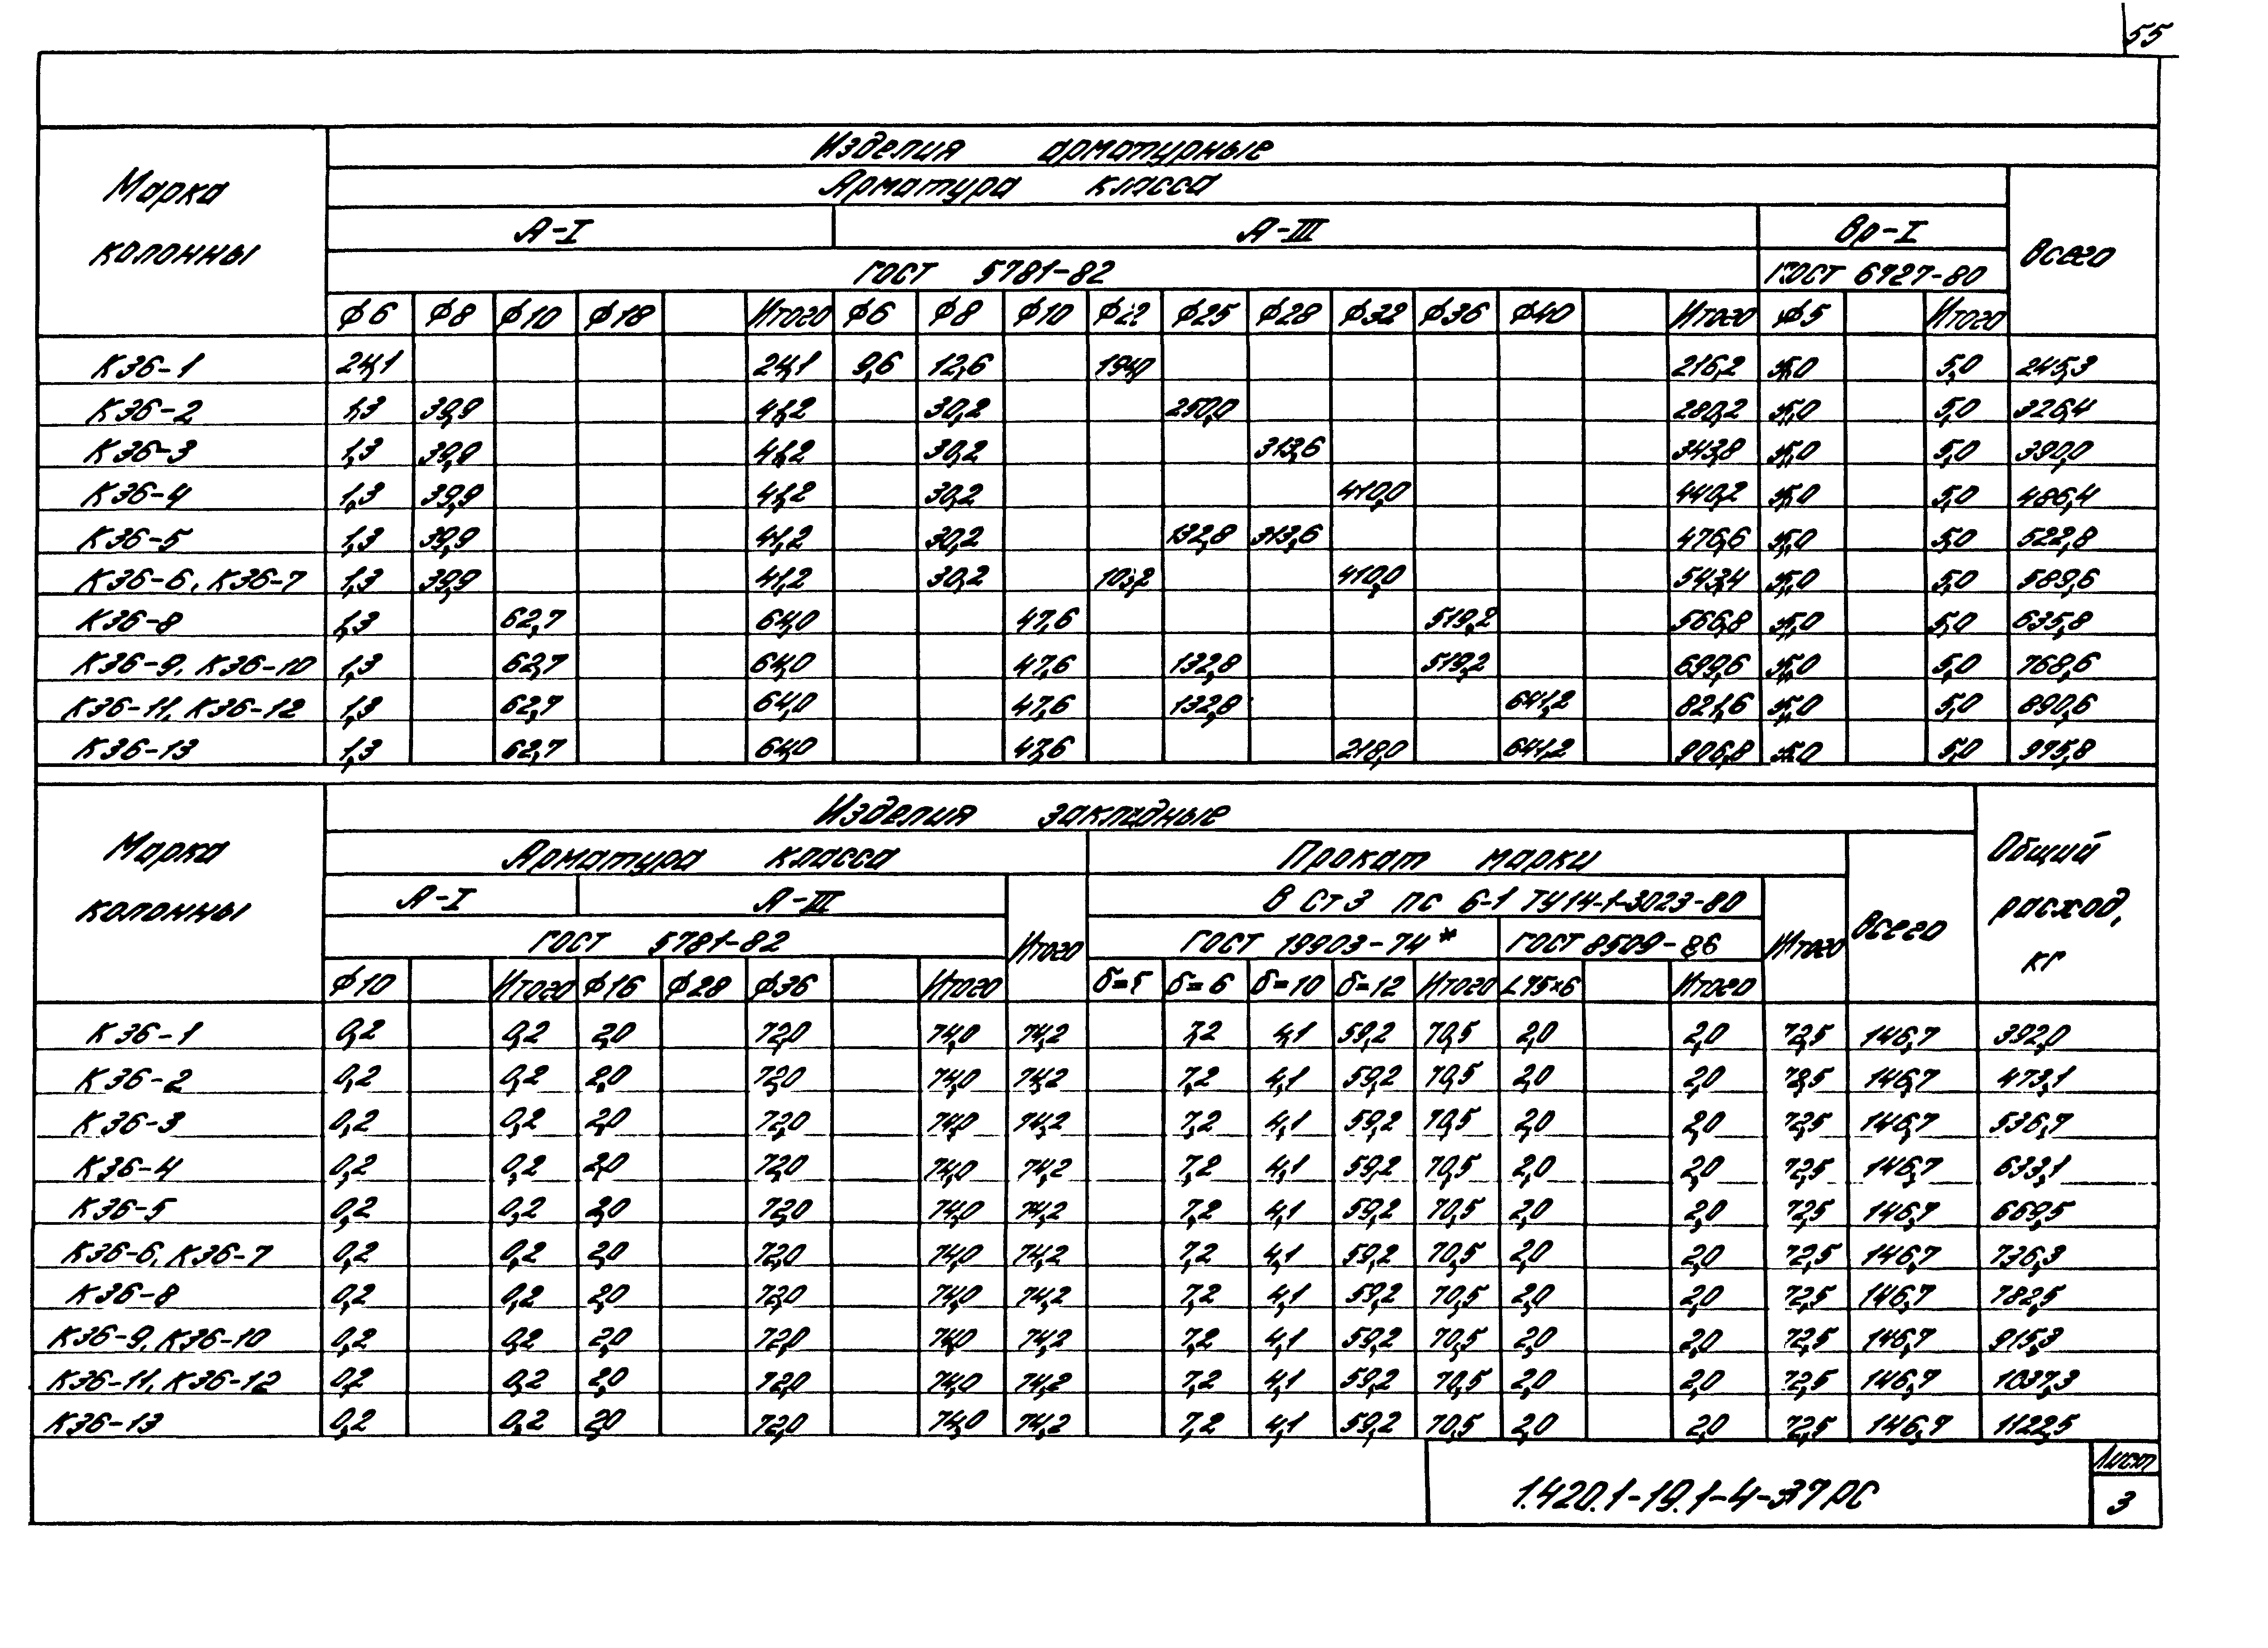 55
Изделия арматурные
Марка колонны
Арматура класса
Всего
А-I А-III Вр-I
ГОСТ 5781-82 ГОСТ 6727-80
ф6 ф8 ф10 ф18 Итого ф6 ф8 ф10 ф22 ф25 ф28 ф32 ф36 ф40 Итого ф5 Итого
К36-1 24,1 24,1 9,6 12,6 194,0 216,2 5,0 5,0 245,3
К36-2 1,3 39,9 41,2 30,2 250,0 280,2 5,0 5,0 326,4
К36-3 1,3 39,9 41,2 30,2 313,6 343,8 5,0 5,0 390,0
К36-4 1,3 39,9 41,2 30,2 410,0 440,2 5,0 5,0 486,4
К36-5 1,3 39,9 41,2 30,2 132,8 313,6 476,6 5,0 5,0 522,8
К36-6, К36-7 1,3 39,9 41,2 30,2 103,2 410,0 543,4 5,0 5,0 589,6
К36-8 1,3 62,7 64,0 47,6 519,2 566,8 5,0 5,0 635,8
К36-9, К36-10 1,3 62,7 64,0 47,6 132,8 519,2 699,6 5,0 5,0 768,6
К36-11, К36-12 1,3 62,7 64,0 47,6 132,8 641,2 821,6 5,0 5,0 890,6
К36-13 1,3 62,7 64,0 47,6 218,0 641,2 906,8 5,0 5,0 975,8
Изделия закладные
Марка колонны
Общий расход, кг
Арматура класса Прокат марки
Всего
А-I А-III Итого В Ст 3 пс 6-1 ТУ14-1-3023-80 Итого
ГОСТ 5781-82 ГОСТ 19903-74* ГОСТ 8509-86
ф10 Итого ф16 ф28 ф36 Итого б=5 б=6 б=10 б=12 Итого L75×6 Итого
К36-1 0,2 0,2 2,0 72,0 74,0 74,2 7,2 4,1 59,2 70,5 2,0 2,0 72,5 146,7 392,0
К36-2 0,2 0,2 2,0 72,0 74,0 74,2 7,2 4,1 59,2 70,5 2,0 2,0 72,5 146,7 473,1
К36-3 0,2 0,2 2,0 72,0 74,0 74,2 7,2 4,1 59,2 70,5 2,0 2,0 72,5 146,7 536,7
К36-4 0,2 0,2 2,0 72,0 74,0 74,2 7,2 4,1 59,2 70,5 2,0 2,0 72,5 146,7 633,1
К36-5 0,2 0,2 2,0 72,0 74,0 74,2 7,2 4,1 59,2 70,5 2,0 2,0 72,5 146,7 669,5
К36-6, К36-7 0,2 0,2 2,0 72,0 74,0 74,2 7,2 4,1 59,2 70,5 2,0 2,0 72,5 146,7 736,3
К36-8 0,2 0,2 2,0 72,0 74,0 74,2 7,2 4,1 59,2 70,5 2,0 2,0 72,5 146,7 782,5
К36-9, К36-10 0,2 0,2 2,0 72,0 74,0 74,2 7,2 4,1 59,2 70,5 2,0 2,0 72,5 146,7 915,3
К36-11, К36-12 0,2 0,2 2,0 72,0 74,0 74,2 7,2 4,1 59,2 70,5 2,0 2,0 72,5 146,7 1037,3
К36-13 0,2 0,2 2,0 72,0 74,0 74,2 7,2 4,1 59,2 70,5 2,0 2,0 72,5 146,7 1122,5
1.420.1-19.1-4-37 РС
Лист
3